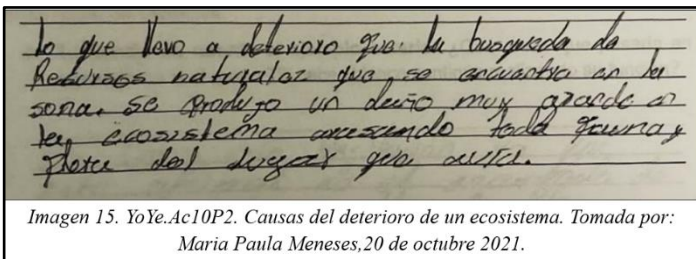 lo que llevo a deterioro fue. la busqueda de
Recursos naturales que se encuentra en la
sona. se produjo un daño muy grande en
la ecosistema toda fauna y
flora del lugar que
Imagen 15. YoYe.Ac10P2. Causas del deterioro de un ecosistema. Tomada por:
Maria Paula Meneses,20 de octubre 2021.